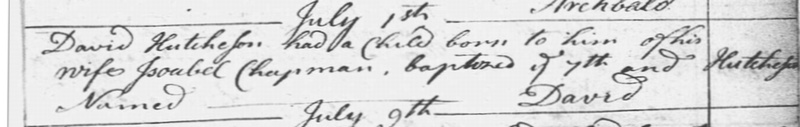 Archbald
July 1st
David Hutcheson had a Child born to him of his
wife Isoabel Chapman, baptized ye 7th and Hutcheso
Named David
July 9th